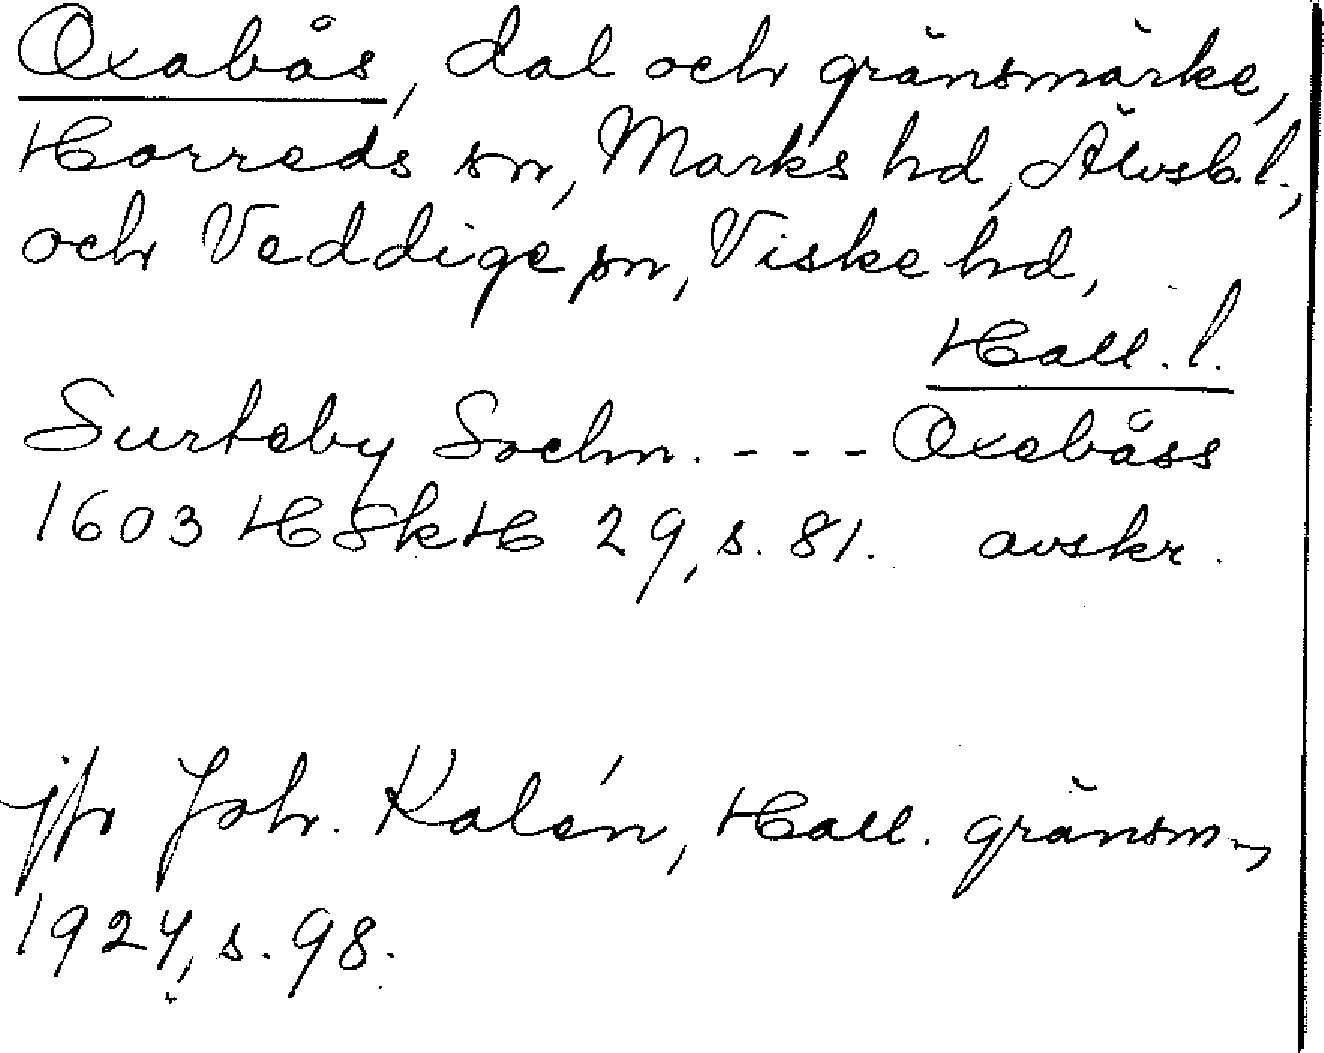 Oxabås, dal och gränsmärke,
Horreds sn, Marks hd, Älvsb. l.,
och Veddige sn, Viske hd,
Hall. l.
Surteby Sochn. - - - Oxebåss
1603 HSkH 29, s. 81. avskr.
jfr Joh. Kalén, Hall. gränsm.,
1924, s. 98.